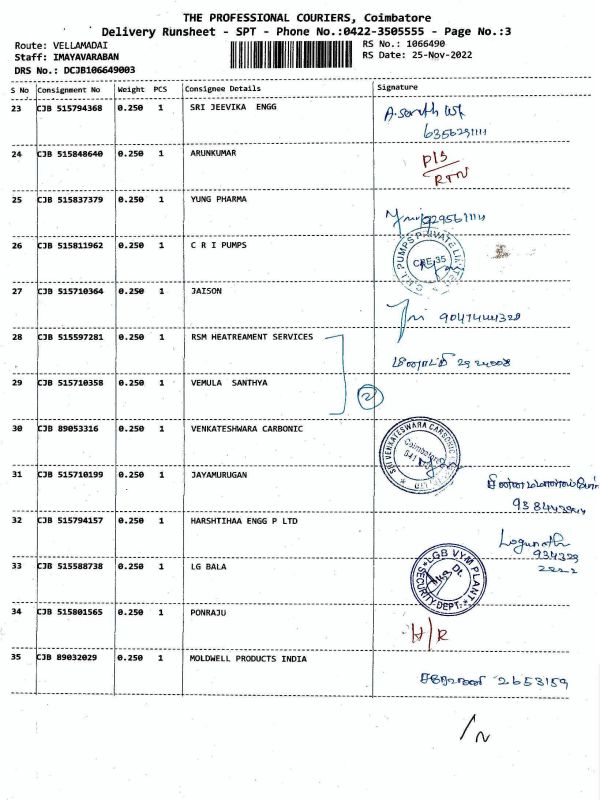 THE PROFESSIONAL COURIERS, Coimbatore
Delivery Runsheet - SPT - Phone No.:0422-3505555 - Page No.:3
Route: VELLAMADAI
RS No.: 1066490
Staff: IMAYAVARABAN
RS Date: 25-Nov-2022
DRS No.: DCJB106649003
S No Consignment No Weight PCS Consignee Details Signature
23 CJB 515794368 0.250 1 SRI JEEVIKA ENGG
24 CJB 515848640 0.250 1 ARUNKUMAR
RTN
25 CJB 515837379 0.250 1 YUNG PHARMA
26 CJB 515811962 0.250 1 C R I PUMPS
C.R.I. PUMPS PRIVATE LIMITED
27 CJB 515710364 0.250 1 JAISON
28 CJB 515597281 0.250 1 RSM HEATREAMENT SERVICES
29 CJB 515710358 0.250 1 VEMULA SANTHYA
2
30 CJB 89053316 0.250 1 VENKATESHWARA CARBONIC
SRI VENKATESWARA CARBONIC
Coimbatore
31 CJB 515710199 0.250 1 JAYAMURUGAN
32 CJB 515794157 0.250 1 HARSHTIHAA ENGG P LTD
Logunath
33 CJB 515588738 0.250 1 LG BALA
LGB VYM PLANT
SECURITY DEPT.
34 CJB 515801565 0.250 1 PONRAJU
H/R
35 CJB 89032029 0.250 1 MOLDWELL PRODUCTS INDIA
2653159